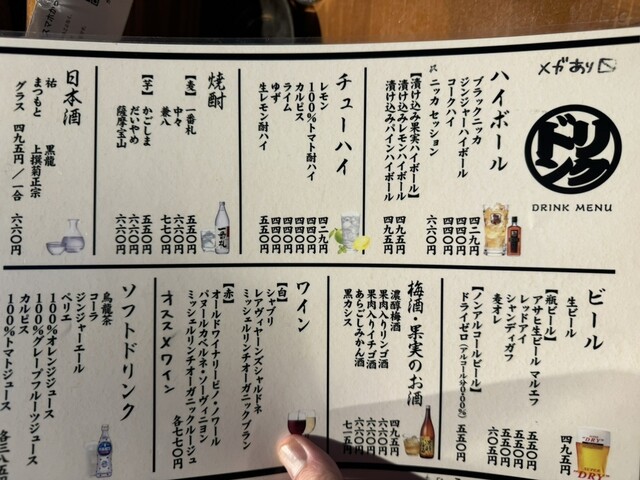 メガあり
ドリンク
DRINK MENU
ハイボール
ブラックニッカ 四二九円
ジンジャーハイボール 四四〇円
コークハイ 四四〇円
ニッカ セッション 六六〇円
【漬け込み果実ハイボール】
漬け込みレモンハイボール 四九五円
漬け込みパインハイボール 四九五円
チューハイ
レモン 四二九円
100%トマト酎ハイ 四四〇円
カルピス 四四〇円
ライム 四四〇円
ゆず 四四〇円
生レモン酎ハイ 五五〇円
焼酎
【麦】 一番札 五五〇円
中々 六六〇円
兼八 七七〇円
【芋】 かごしま 五五〇円
だいやめ 六六〇円
薩摩宝山 六六〇円
日本酒
祐 黒龍
まつもと 上撰菊正宗
グラス 四九五円/一合
ビール
生ビール 四九五円
【瓶ビール】
アサヒ生ビール マルエフ
レッドアイ 五五〇円
シャンディガフ 五五〇円
麦オレ
【ノンアルコールビール】
ドライゼロ(アルコール分0.00%) 五五〇円
梅酒・果実のお酒
濃醇梅酒 四九五円
果肉入りリンゴ酒 六六〇円
果肉入りイチゴ酒 六六〇円
あらごしみかん酒 六六〇円
黒カシス 七一五円
ワイン
【白】
シャブリ
レアヴィンヤーズシャルドネ
ミッシェルリンチオーガニックブラン
【赤】
オールドワイナリーピノ・ノワール
バヌールカベルネ・ソーヴィニヨン
ミッシェルリンチオーガニックルージュ
各七七〇円
オススメワイン
ソフトドリンク
烏龍茶
コーラ
ジンジャーエール
ペリエ
100%オレンジジュース
100%グレープフルーツジュース
カルピス
100%トマトジュース
DRY
SUPER "DRY"